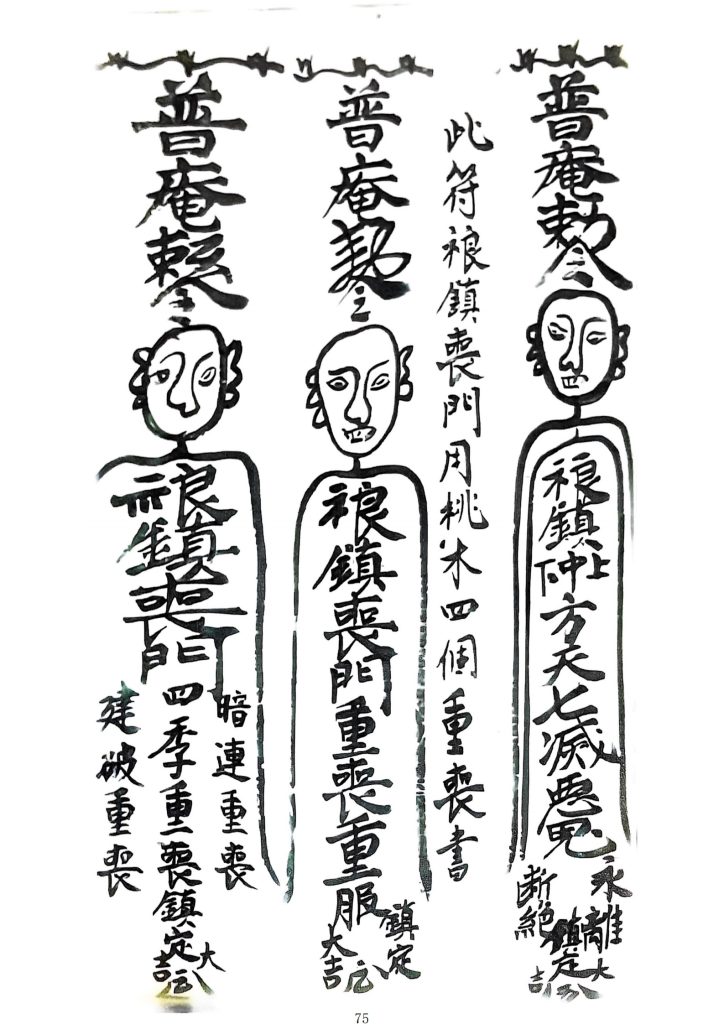 普庵勅令
䄄鎮上中下方天七滅
永離
断絕
鎮定大吉
此符䄄鎮喪門用桃木四個重喪書
普庵勅令
䄄鎮喪門重喪重服
鎮定
大吉
普庵勅令
䄄鎮喪門
暗連重喪
四季重喪鎮定大吉
建破重喪
75